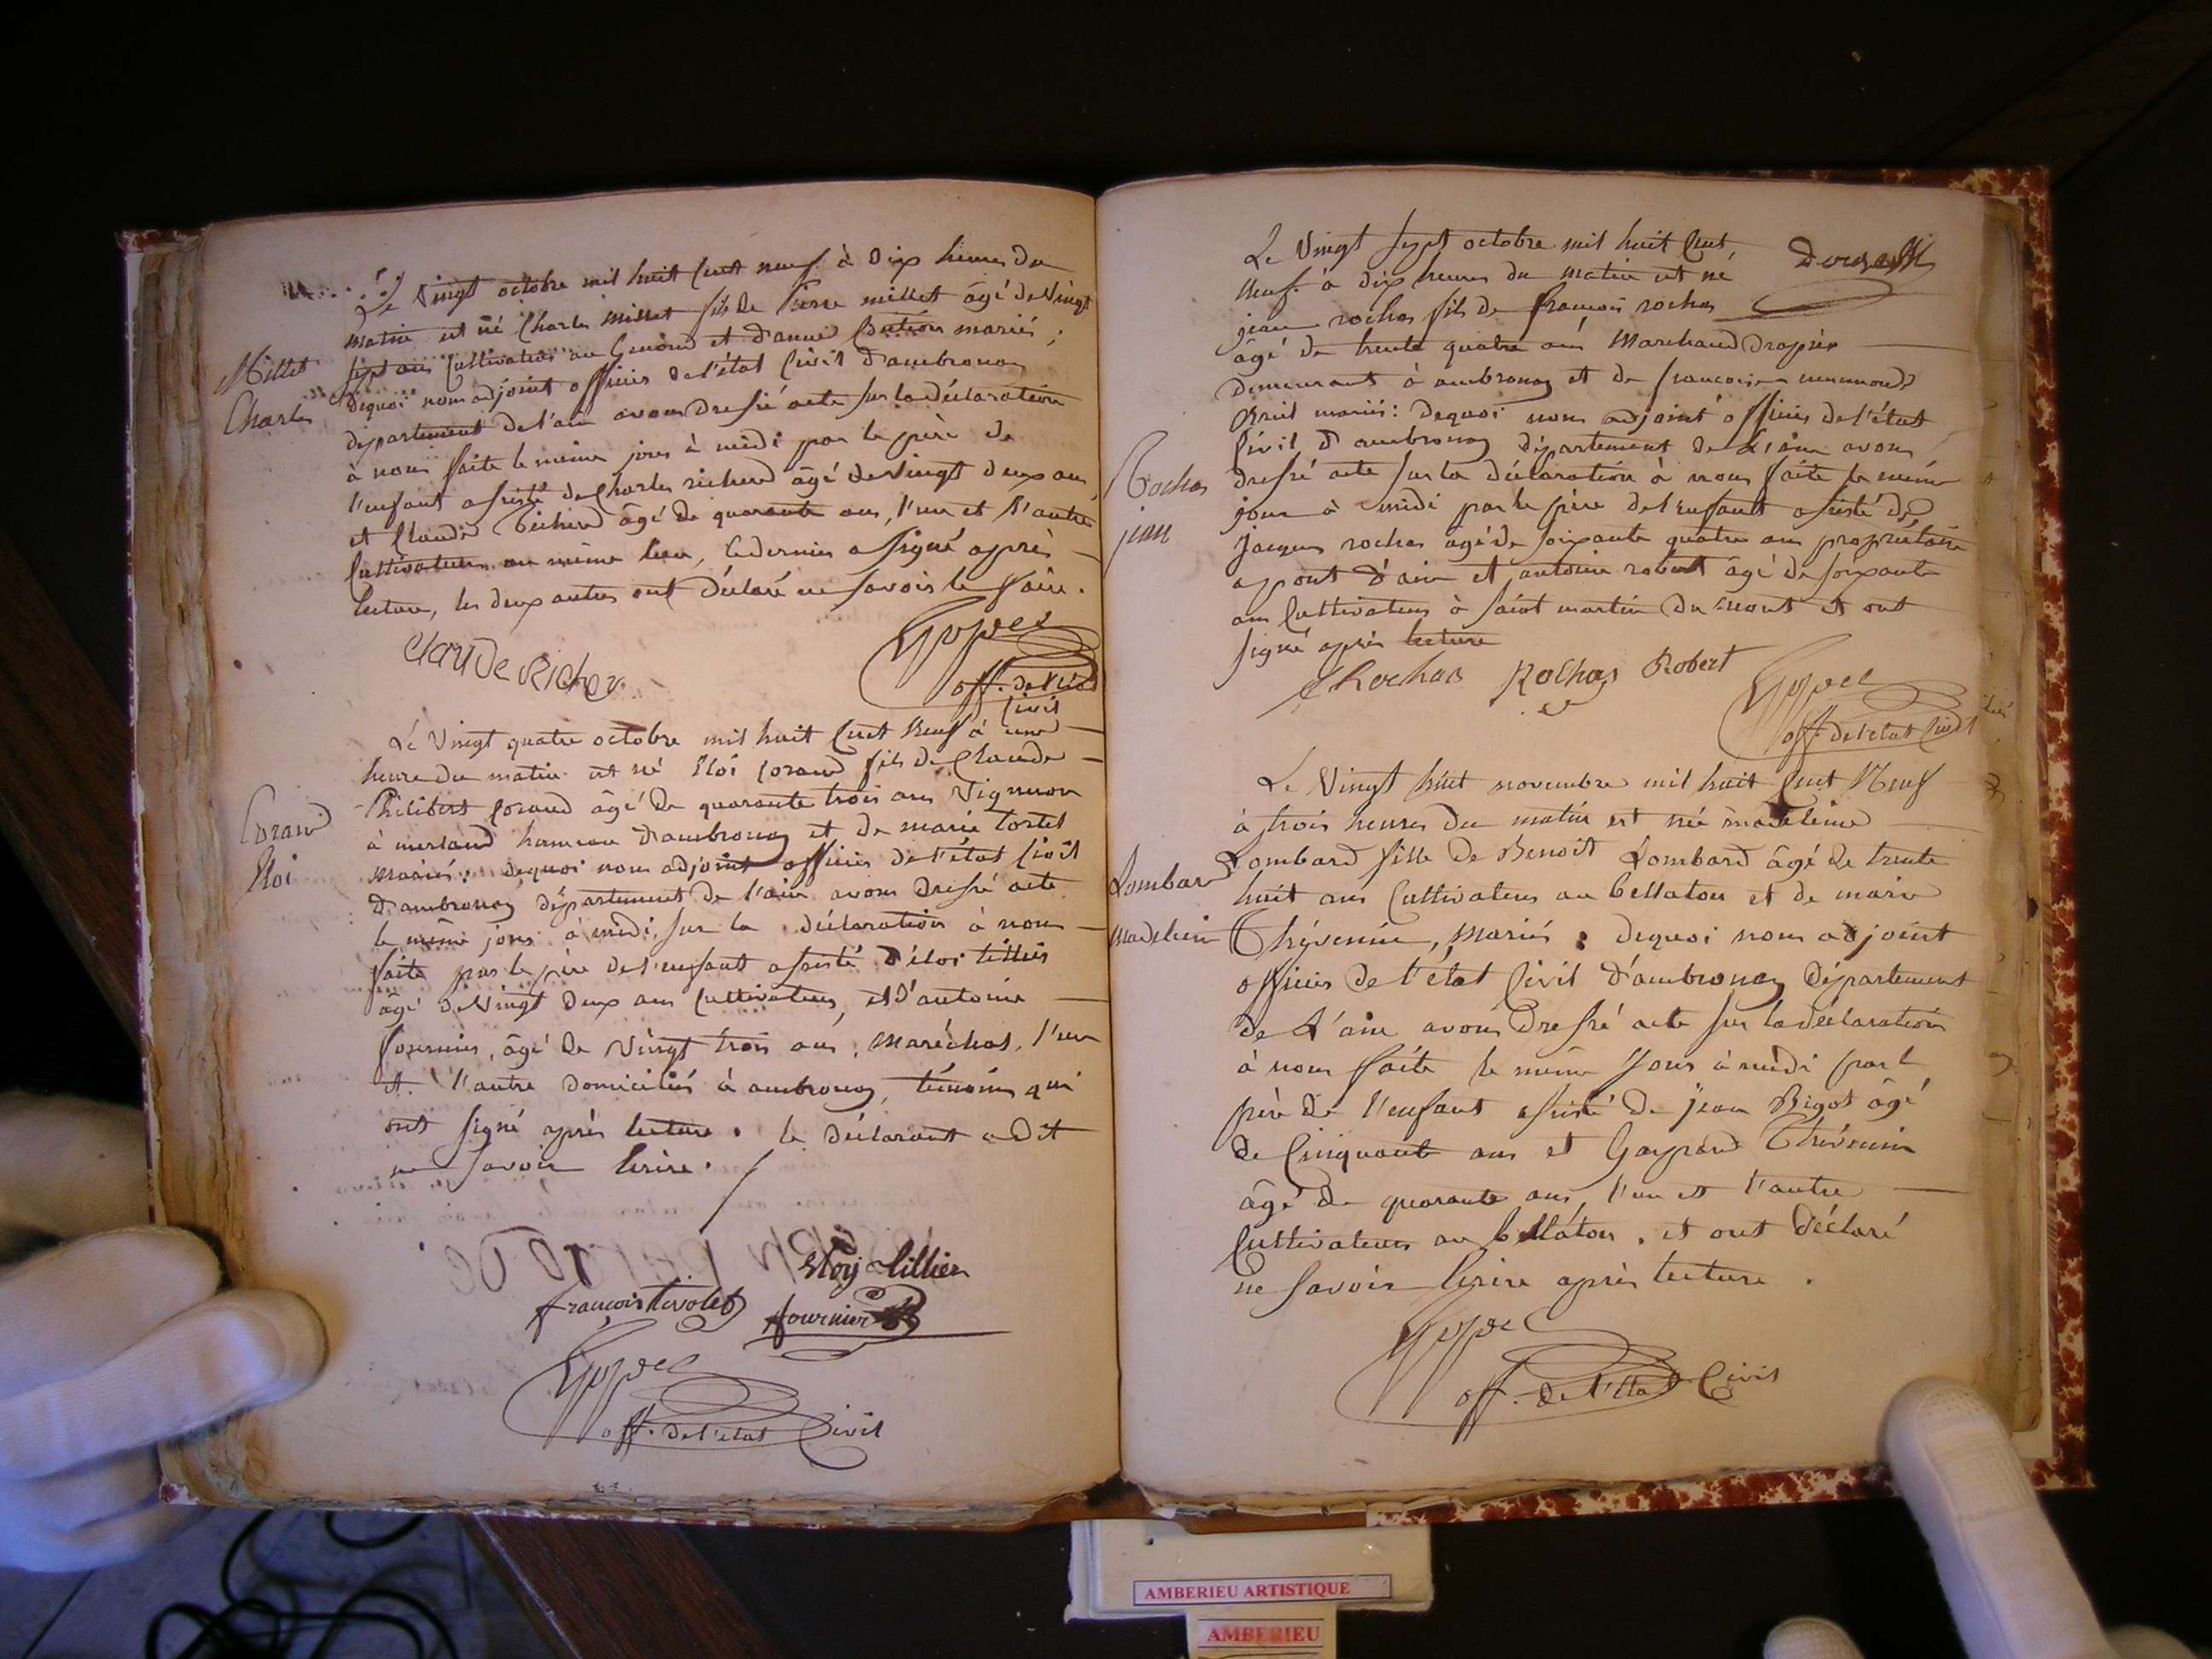 Le Vingt octobre mil huit Cent neuf à dix heures du
matin est né Charles Millet fils de Pierre millet âgé de Vingt
sept ans Cultivateur au Genoud et d'anne mariés ;
dequoi nous adjoint officier de l'état Civil d'ambronay
département de l'ain avons dressé acte sur la déclaration
à nous faite le même jour à midi par le père de
l'enfant assisté de Charles richerd âgé de Vingt deux ans
et Claude Richerd âgé de quarante ans, l'un et l'autre
Cultivateurs au même lieu, le dernier a signé après
lecture, les deux autres ont déclaré ne savoir le faire.
Millet
Charles
Claude Richer
off. de l'état
Civil
Le Vingt quatre octobre mil huit Cent Neuf à une
heure du matin est né Eloi Corand fils de Claude
Philibert Corand âgé de quarante trois ans Vigneron
à merland hameau d'ambronay et de marie tortel
mariés : dequoi nous adjoint officier de l'état Civil
d'ambronay département de l'ain avons dressé acte
le même jour à midi, sur la déclaration à nous
faite par le père de l'enfant assisté d'éloi tillier
âgé de Vingt deux ans Cultivateur, et d'antoine
fournier, âgé de Vingt trois ans, Maréchal, l'un
et l'autre domiciliés à ambronay, témoins qui
ont signé après lecture. le déclarant a dit
ne savoir écrire.
Corand
Eloi
Eloy tillier
françois tivolet fournier
off. de l'état Civil
Le Vingt sept octobre mil huit Cent
Neuf à dix heures du matin est né
jean rochas fils de françois rochas
âgé de trente quatre ans Marchand drapier
demeurant à ambronay et de francoise
mariés : dequoi nous adjoint officier de l'état
Civil d'ambronay département de L'ain avons
dressé acte sur la déclaration à nous faite le même
jour à midi par le père de l'enfant assisté de
Jacques rochas âgé de soixante quatre ans propriétaire
a pont d'ain et antoine robert âgé de soixante
ans Cultivateur à saint martin du mont et ont
signé après lecture
Rochas
jean
Rochas Rochas Robert
off. de l'état Civil
Le Vingt huit novembre mil huit Cent Neuf
à trois heures du matin est née madeleine
Lombard fille de Benoît Lombard âgé de trente
huit ans Cultivateur au bellaton et de marie
Thévenin, mariés : dequoi nous adjoint
officier de l'état Civil d'ambronay département
de L'ain avons dressé acte sur la déclaration
à nous faite le même jour à midi par l
père de l'enfant assisté de jean Bigot âgé
de Cinquante ans et Gaspard Thévenin
âgé de quarante ans, l'un et l'autre
Cultivateurs au bellaton, et ont déclaré
ne savoir écrire après lecture.
Lombard
Madelein
off. de l'état Civil
AMBERIEU ARTISTIQUE
AMBERIEU